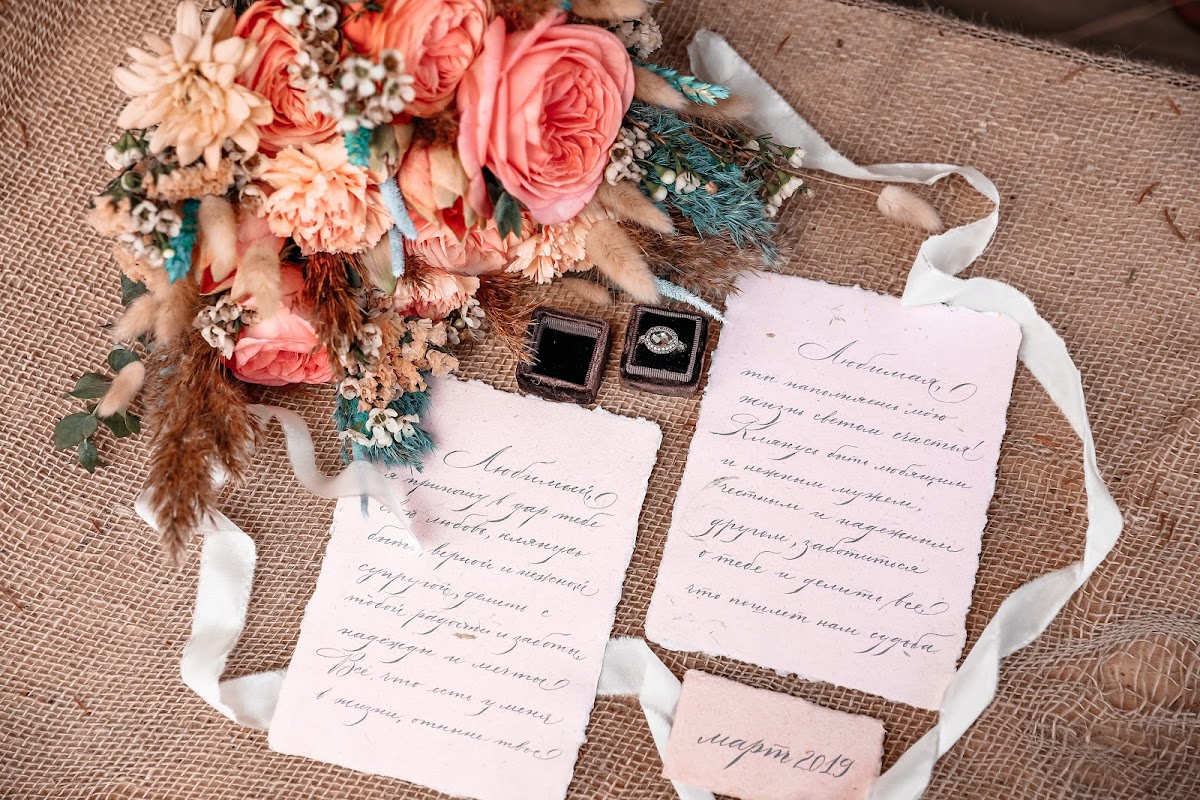 Любимый,
я приношу в дар тебе
любовь, клянусь
быть верной и нежной
супругой, делить с
тобой радости и заботы
надежды и мечты
Всё, что есть у меня
в жизни, отныне твоё
Любимая,
ты наполняешь мою
жизнь светом счастья!
Клянусь быть любящим
и нежным мужем,
честным и надежным
другом, заботиться
о тебе и делить всё
что пошлет нам судьба
март 2019